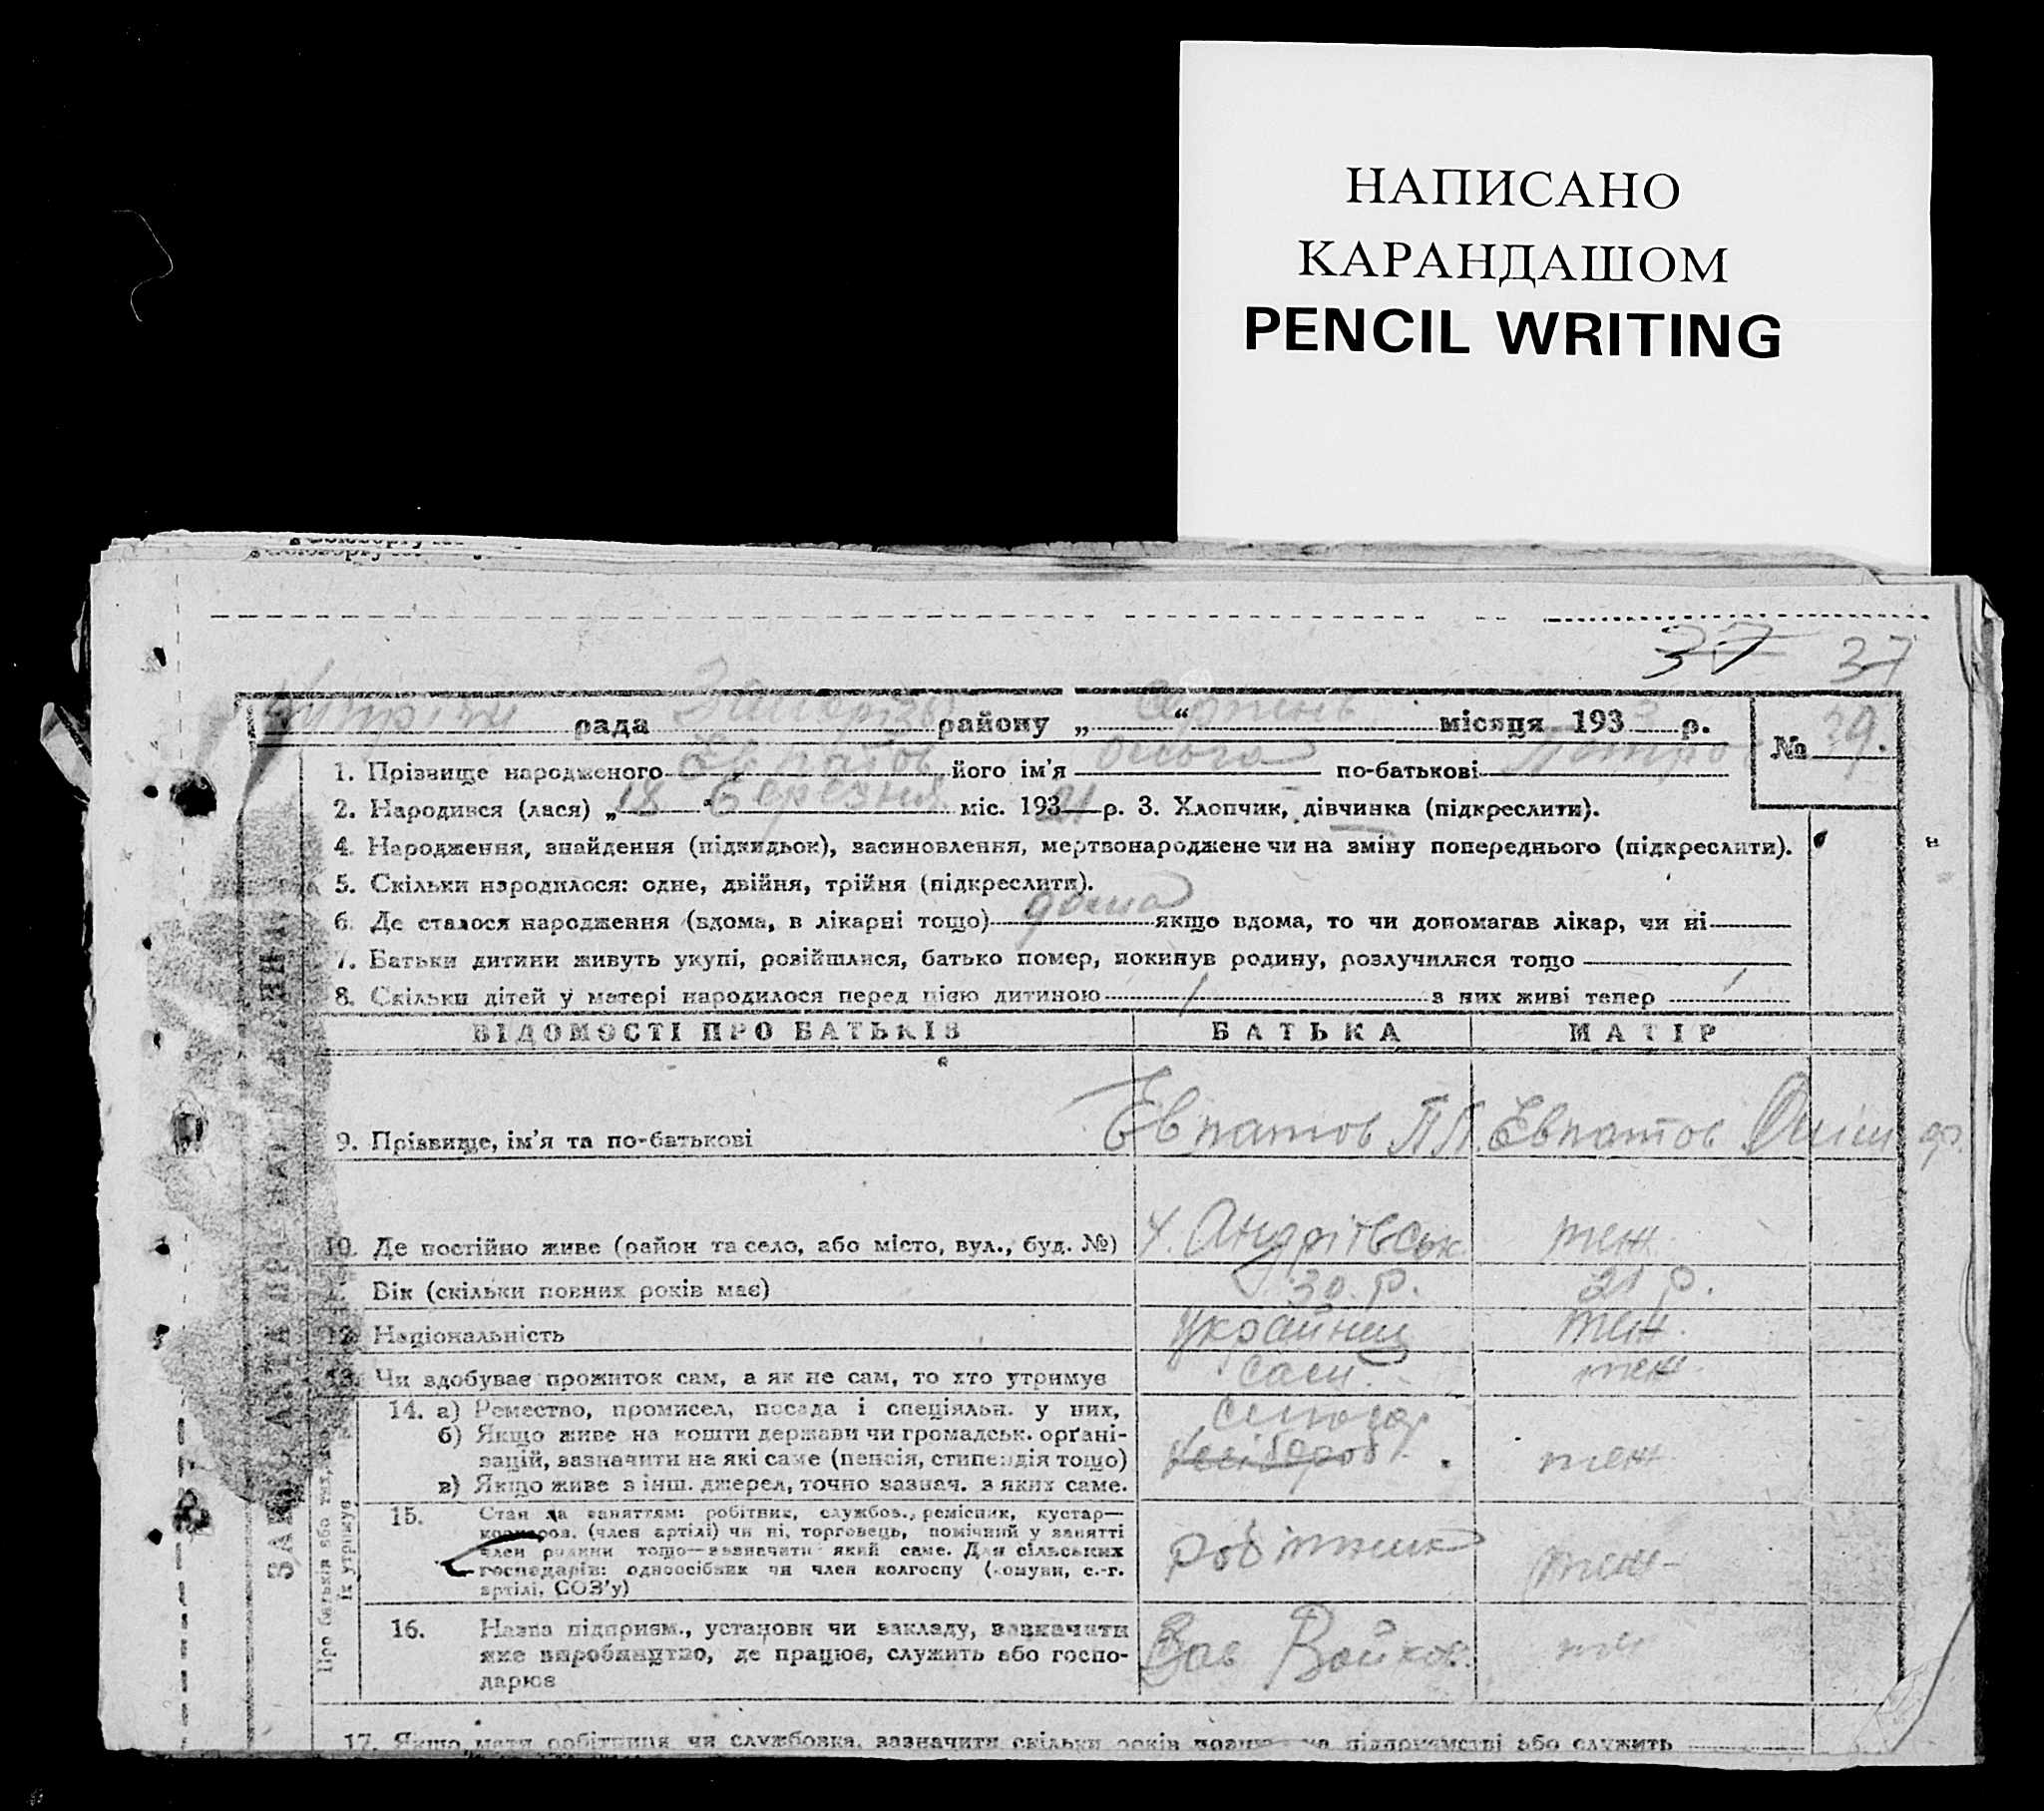 НАПИСАНО
КАРАНДАШОМ
PENCIL WRITING
37 37
рада району „ “ Серпень місяця 1933 р.
№ 29.
1. Прізвище народженого його ім'я Ольга по-батькові Петров
2. Народився (лася) „18 “ Березня міс. 193 р. 3. Хлопчик, дівчинка (підкреслити).
4. Народження, знайдення (підкидьок), засиновлення, мертвонароджене чи на зміну попереднього (підкреслити).
5. Скільки народилося: одне, двійня, трійня (підкреслити).
6. Де сталося народження (вдома, в лікарні тощо) дома якщо вдома, то чи допомагав лікар, чи ні
7. Батьки дитини живуть укупі, розійшлися, батько помер, покинув родину, розлучилися тощо
8. Скільки дітей у матері народилося перед цією дитиною 1 з них живі тепер 1
ВІДОМОСТІ ПРО БАТЬКІВ БАТЬКА МАТІР
9. Прізвище, ім'я та по-батькові Евпатов П П. Евпатов
10. Де постійно живе (район та село, або місто, вул., буд. №) теж
Вік (скільки повних років має) 30. р. 21 р.
12. Національність українец теж.
13. Чи здобуває прожиток сам, а як не сам, то хто утримує сам. теж
14. а) Ремество, промисел, посада і спеціяльн. у них, слюсар
б) Якщо живе на кошти держави чи громадськ. орґані-
зацій, зазначити на які саме (пенсія, стипендія тощо) теж
в) Якщо живе з інш. джерел, точно зазнач. з яких саме.
15. Стан за заняттям: робітник, службов., ремісник, кустар—
коопаров. (член артілі) чи ні, торговець, помічний у занятті
член родини тощо—зазначити який саме. Для сільських
господарів: одноосібник чи член колгоспу (комуни, с.-г.
артілі, СОЗ'у) робітник теж
16. Назва підприєм., установи чи закладу, зазначити
яке виробництво, де працює, служить або госпо-
дарює Зав Войков. теж
17. Якщо мати робітниця чи службовка, зазначити скільки років працює на підприємстві або служить
Про батьків або тих, хто
їх утримує